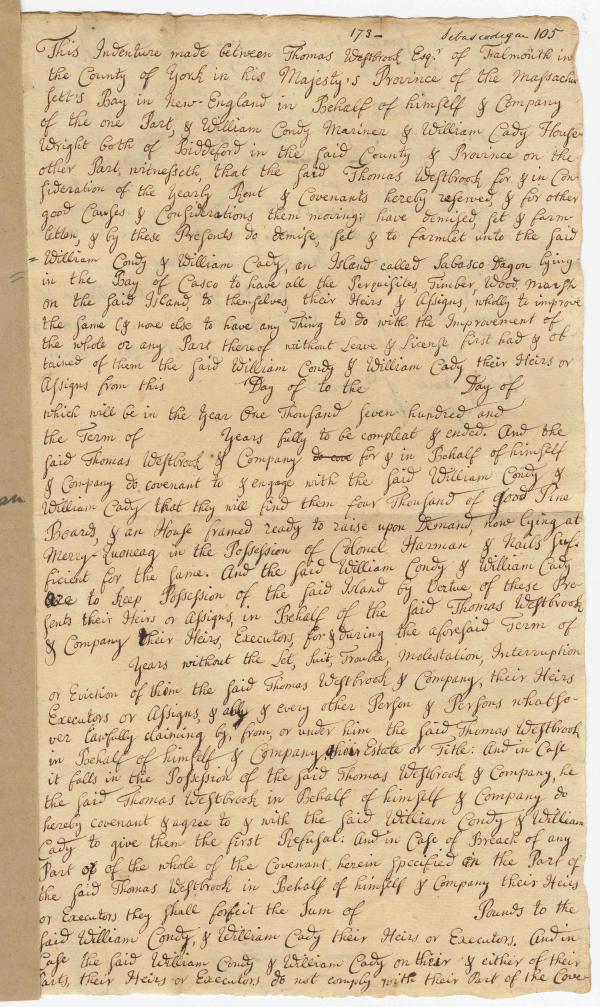 173-
Sebascodegan 105
This Indenture made between Thomas Westbrook Esqr. of Falmouth in
the County of York in his Majesty's Province of the Massachu
sett's Bay in New-England in Behalf of himself & Company
of the one Part, & William Condy Mariner & William Cady House-
Wright both of Biddeford in the said County & Province on the
other Part, witnesseth, that the said Thomas Westbrook for & in Con-
sideration of the Yearly Rent & Covenants hereby reserved, & for other
good Causes & Considerations them moving; have demised, set & farm-
letten, & by these Presents do demise, set & to farmlet unto the said
William Condy & William Cady, an Island called Sabasco Dagon lying
in the Bay of Casco to have all the Perquisites, Timber, Wood, Marsh
on the said Island, to themselves, their Heirs & Assigns, wholly to improve
the same (& none else to have any Thing to do with the Improvement of
the whole or any Part thereof without Leave & License first had & ob
tained of them the said William Condy & William Cady their Heirs or
Assigns from this Day of to the Day of
which will be in the Year One Thousand seven hundred and
the Term of Years fully to be compleat & ended. And the
said Thomas Westbrook & Company do cove for & in Behalf of himself
& Company do covenant to & engage with the said William Condy &
William Cady that they will find them four Thousand of good Pine
Boards, & an House framed ready to raise upon Demand, now lying at
Merry-Quoneag in the Possession of Colonel Harman & Nails suf-
ficient for the same. And the said William Condy & William Cady
are to keep Possession of the said Island by Vertue of these Pre-
sents their Heirs or Assigns, in Behalf of the said Thomas Westbrook
& Company their Heirs, Executors, for & during the aforesaid Term of
Years without the Let, Suit, Trouble, Molestation, Interruption
or Eviction of them the said Thomas Westbrook & Company, their Heirs
Executors or Assigns, & all & every other Person & Persons whatso-
ver lawfully claiming by, from, or under him the said Thomas Westbrook
in Behalf of himself & Company their Estate or Title: And in Case
it falls in the Possession of the said Thomas Westbrook & Company, he
the said Thomas Westbrook in Behalf of himself & Company do
hereby covenant & agree to & with the said William Condy & William
Cady to give them the first Refusal: And in Case of Breach of any
Part or of the whole of the Covenant herein specified on the Part of
the said Thomas Westbrook in Behalf of himself & Company their Heirs
or Executors they shall forfeit the Sum of Pounds to the
said William Condy, & William Cady their Heirs or Executors. And in
Case the said William Condy & William Cady on their & either of their
Parts, their Heirs or Executors do not comply with their Part of the Cove